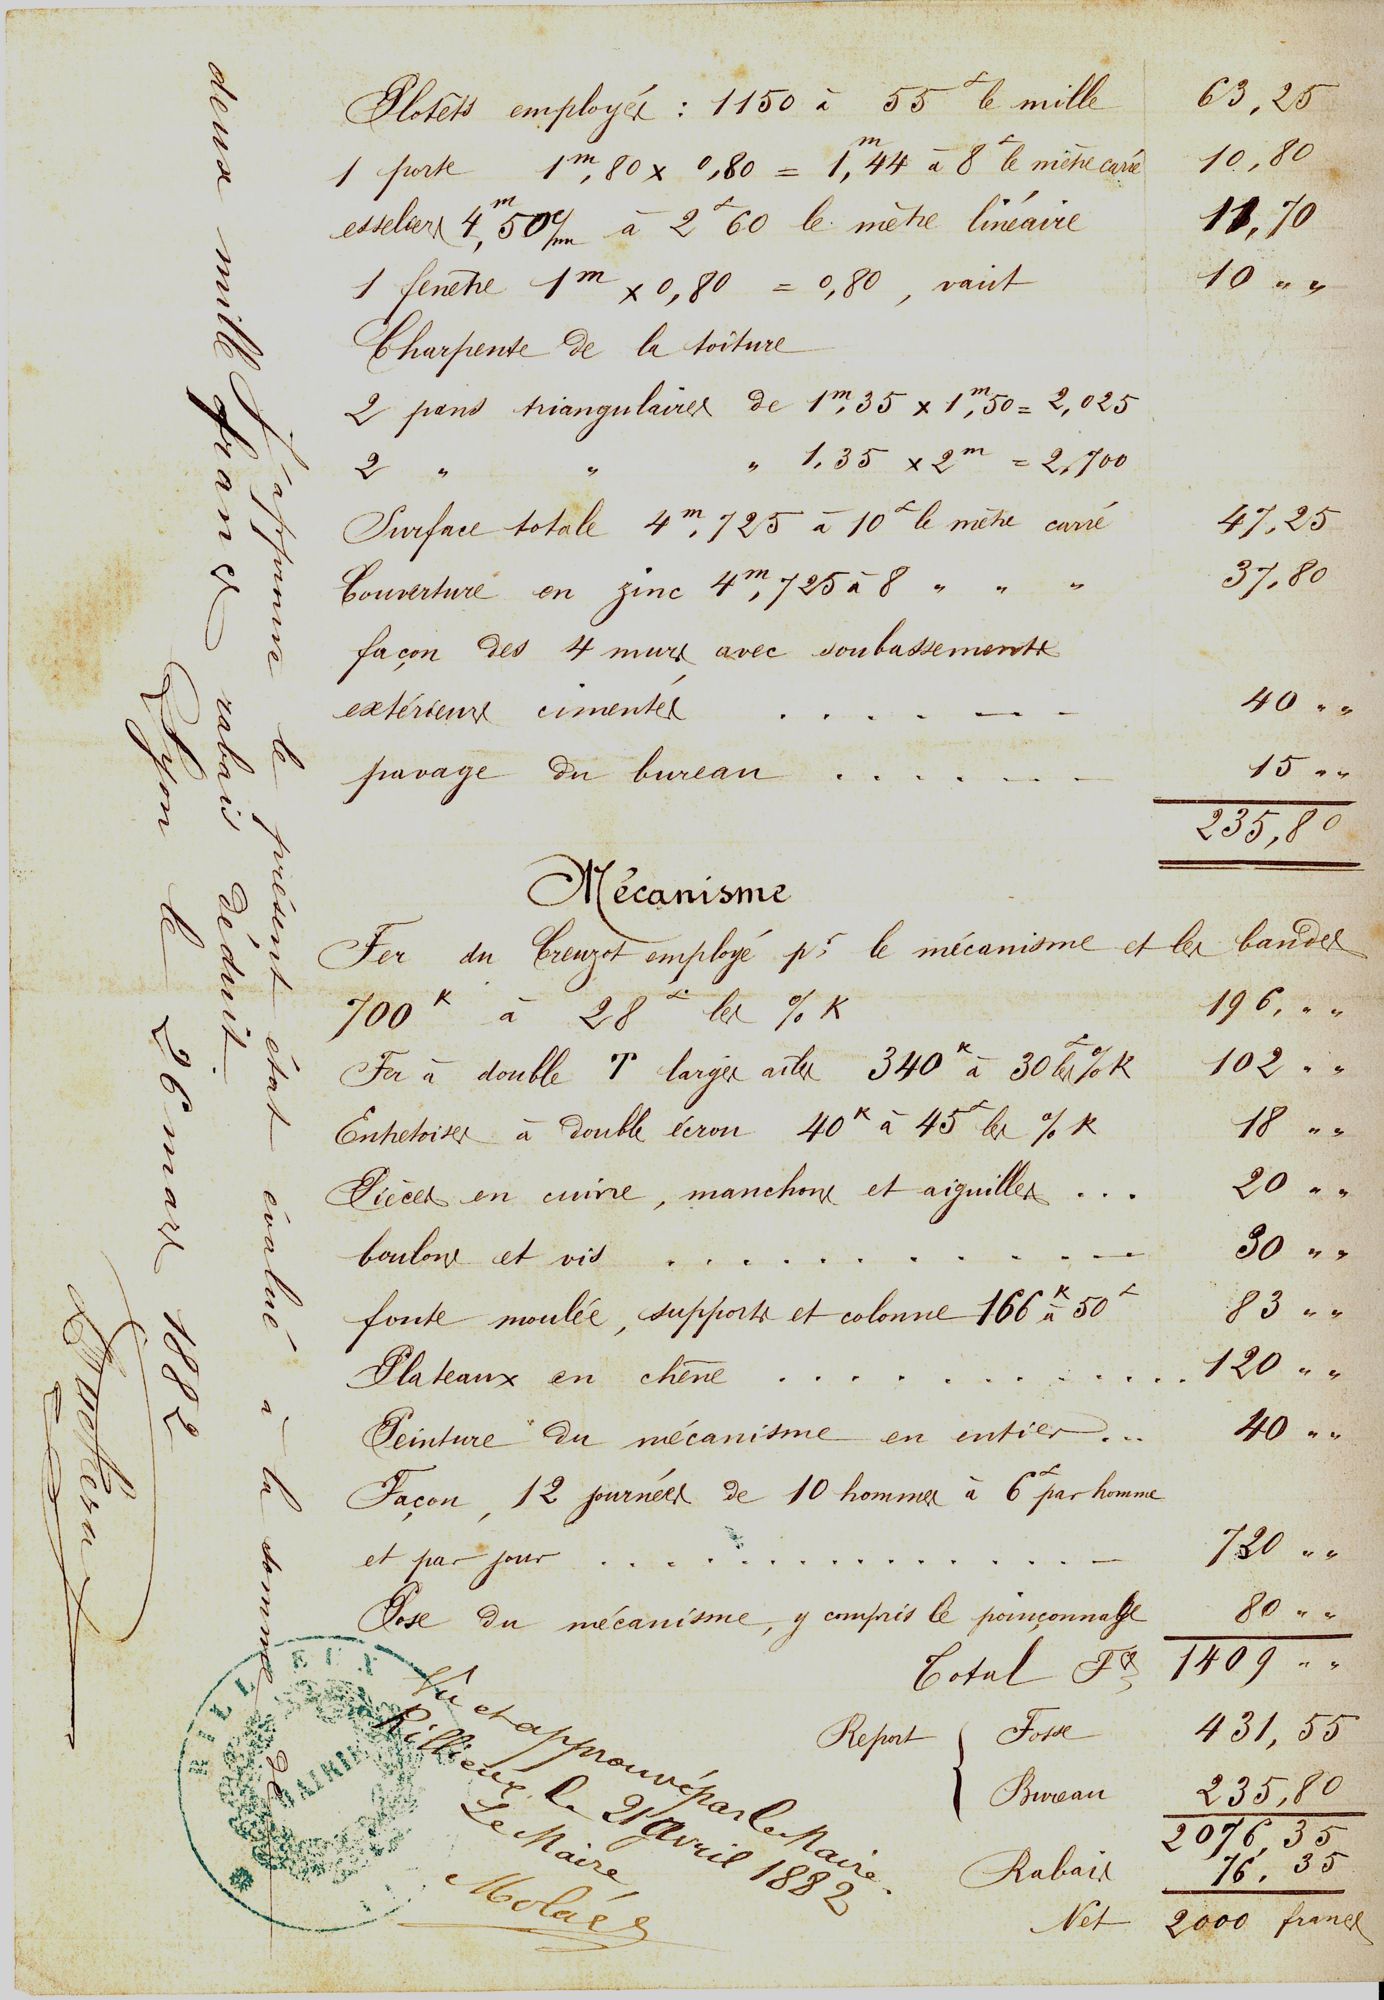 Plotets employés : 1150 à 55 f le mille 63,25
1 porte 1m,80 x 0,80 = 1m,44 à 8 f le mètre carré 10,80
esseliers 4m,50 c/m à 2 f 60 le mètre linéaire 11,70
1 fenêtre 1m x 0,80 = 0,80, vaut 10 " "
Charpente de la toiture
2 pans triangulaires de 1m,35 x 1m,50 = 2,025
2 " " " 1,35 x 2m = 2,700
Surface totale 4m,725 à 10 f le mètre carré 47,25
Couverture en zinc 4m,725 à 8 " " " 37,80
façon des 4 murs avec soubassements
extérieurs cimentés . . . . . . . 40 " "
pavage du bureau . . . . . . . 15 " "
235,80
Mécanisme
Fer du Creuzot employé pr le mécanisme et les bandes
700 K à 28 f les % K 196, " "
Fer à double T larges ailes 340 K à 30 f les % K 102 " "
Entretoises à double écrou 40 K à 45 f les % K 18 " "
Pièces en cuivre, manchons et aiguilles . . . 20 " "
boulons et vis . . . . . . . . . . . 30 " "
fonte moulée, supports et colonne 166 K à 50 f 83 " "
Plateaux en chêne . . . . . . . . . . . . 120 " "
Peinture du mécanisme en entier . . . 40 " "
Façon, 12 journées de 10 hommes à 6 f par homme
et par jour . . . . . . . . . . . . . . . 720 " "
Pose du mécanisme, y compris le poinçonnage 80 " "
Total Fs 1409 " "
Report { Fosse 431,55
Bureau 235,80
2076,35
Rabais 76,35
Net 2000 francs
J'affirme le présent état évalué à la somme de
deux mille francs rabais déduit
Lyon le 26 mars 1882
Vu et approuvé par le Maire
Rillieux le 21 avril 1882
Le Maire
Molard
RILLIEUX
MAIRIE